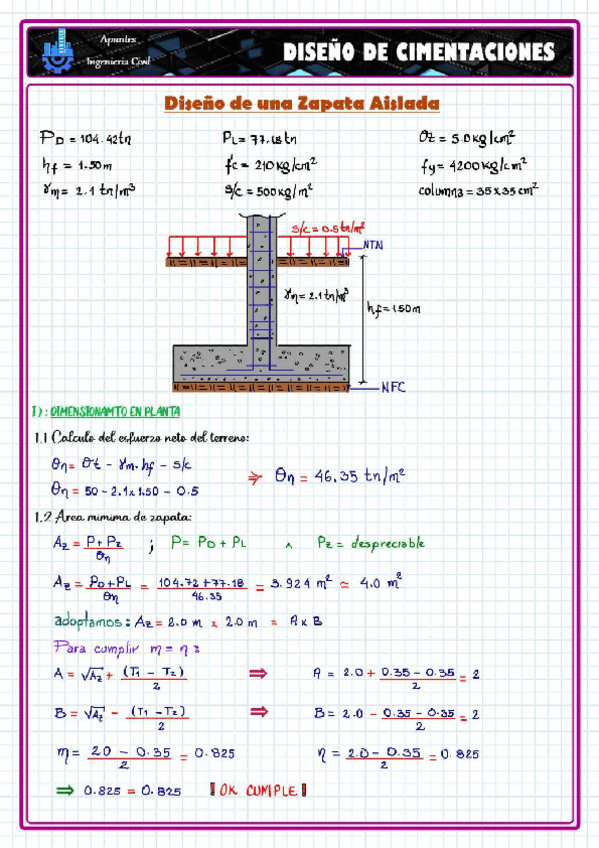 Apuntes
Ingenieria Civil
DISEÑO DE CIMENTACIONES
Diseño de una Zapata Aislada
PD = 104.42tn PL = 77.18tn σt = 5.0kg/cm²
hf = 1.50m f'c = 210kg/cm² fy = 4200kg/cm²
γm = 2.1 tn/m³ s/c = 500kg/m² columna = 35x35cm²
s/c = 0.5tn/m²
NTN
γm = 2.1tn/m³
hf = 1.50m
NFC
I): DIMENSIONAMTO EN PLANTA
1.1 Calculo del esfuerzo neto del terreno:
σn = σt - γm.hf - s/c
σn = 50 - 2.1x1.50 - 0.5 ⇒ σn = 46.35 tn/m²
1.2 Area minima de zapata:
Az = P + Pz / σn ; P = PD + PL ∧ Pz = despreciable
Az = PD+PL / σn = 104.72+77.18 / 46.35 = 3.924 m² ≃ 4.0 m²
adoptamos: Az = 2.0 m x 2.0 m = A x B
Para cumplir m = n :
A = √Az + (T1 - T2) / 2 ⇒ A = 2.0 + 0.35 - 0.35 / 2 = 2
B = √Az - (T1 - T2) / 2 ⇒ B = 2.0 - 0.35 - 0.35 / 2 = 2
m = 2.0 - 0.35 / 2 = 0.825 n = 2.0 - 0.35 / 2 = 0.825
⇒ 0.825 = 0.825 ¡OK CUMPLE!